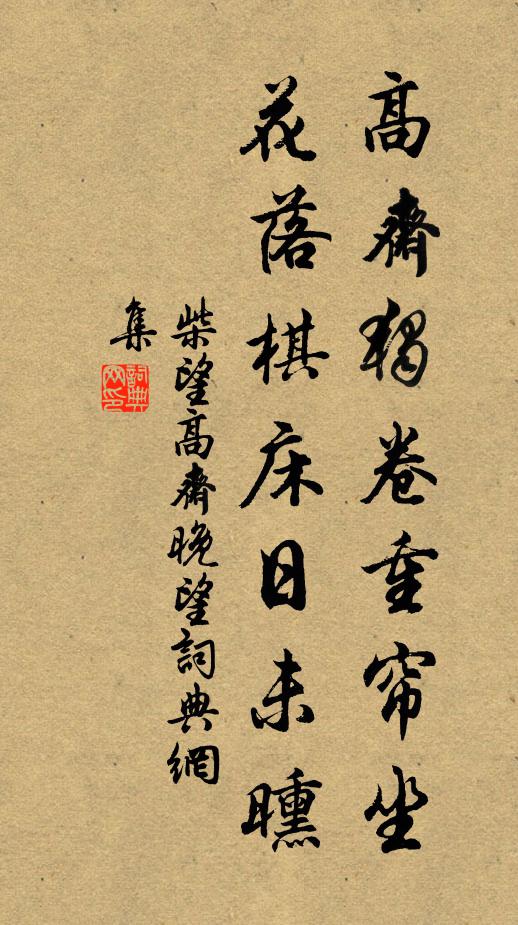 高齋獨卷重帘坐
花落棋床日未曛
柴望高齋晚望詞典網
集
詞典
网印